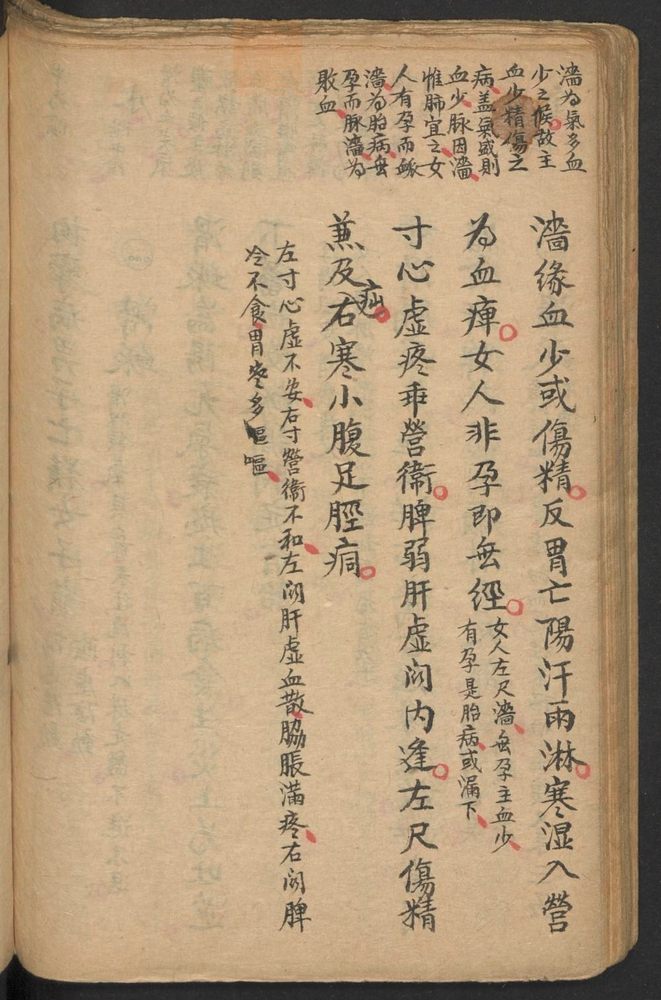 濇為氣多血
少之候故主
血少精傷之
病蓋氣盛則
血少脉因濇
惟肺宜之女
人有孕而脉
濇為胎病無
孕而脉濇為
敗血
濇緣血少或傷精反胃亡陽汗雨淋寒湿入營
為血痺女人非孕即無經
女人左尺濇無孕主血少
有孕是胎病或漏下
寸心虛疼乖營衛脾弱肝虛関内逢左尺傷精
兼及疝右寒小腹足脛痌
左寸心虛不安右寸營衛不和左関肝虛血散脇脹滿疼右関脾
冷不食胃疼多嘔嘔